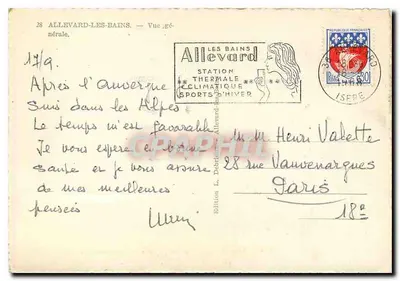 28 ALLEVARD-LES-BAINS. — Vue gé-
nérale.
LES BAINS
Allevard
STATION
THERMALE
CLIMATIQUE
SPORTS D'HIVER
ISERE
17/9.
Après l'auvergne
Suis dans les Alpes
Le temps m'est favorable
Je vous espère en bonne
santé et je vous assure
de mes meilleures
pensées
M. M. Henri Valette
28 rue Vauvenargues
Paris
18e